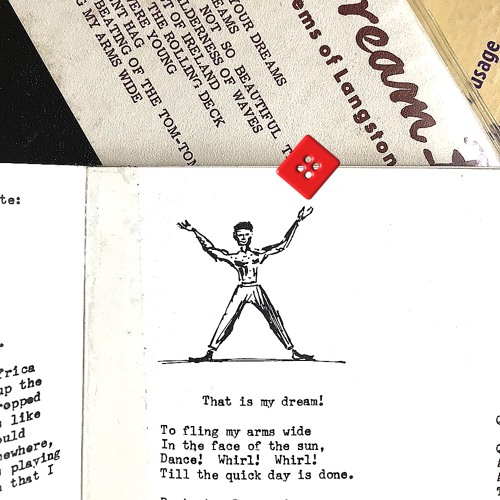 YOUR DREAMS
EAMS
NOT SO BEAUTIFUL
WILDERNESS OF WAVES
OF IRELAND
THE ROLLING DECK
WERE YOUNG
HAG
BEATING OF THE TOM-TOM
MY ARMS WIDE
ream
ems of Langston
usage
te:
frica
up the
ropped
like
ould
ewhere,
playing
that I
That is my dream!
To fling my arms wide
In the face of the sun,
Dance! Whirl! Whirl!
Till the quick day is done.